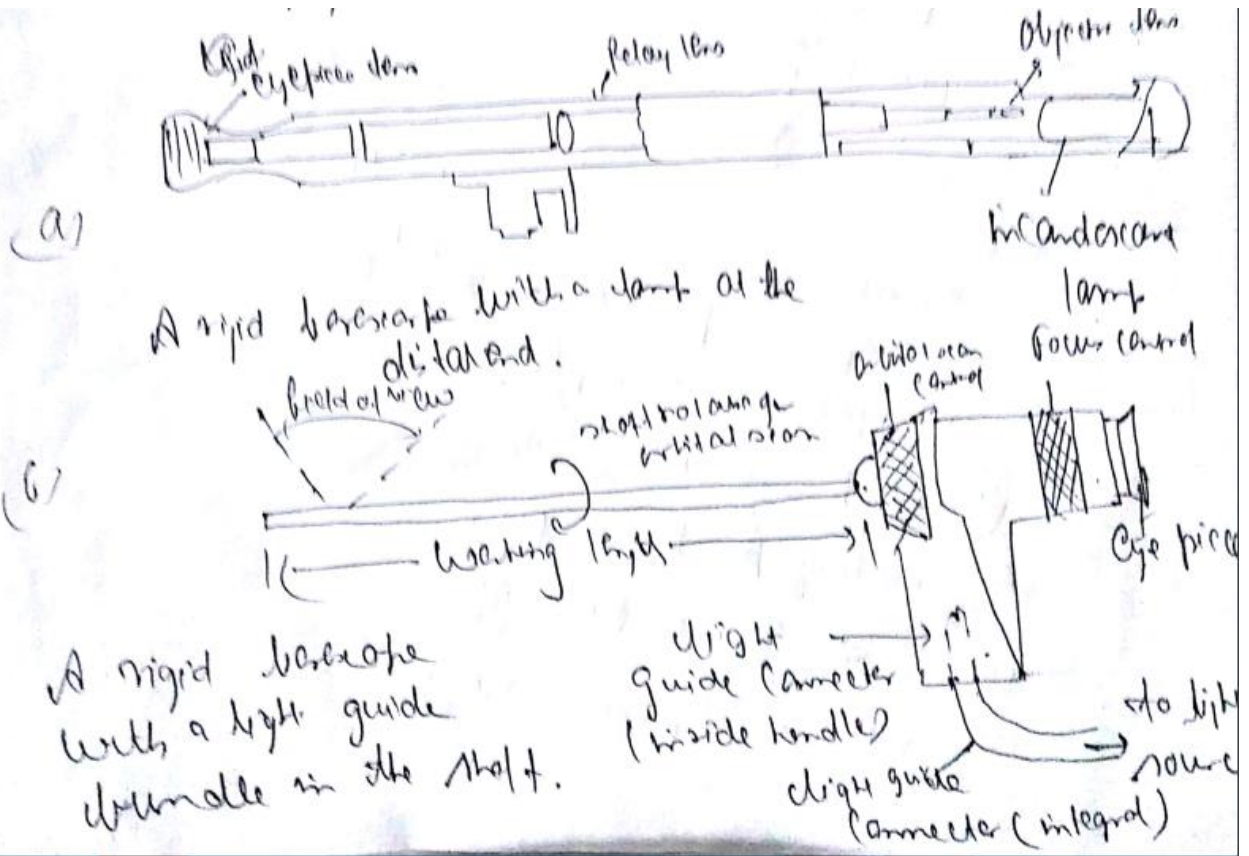 Rigid
eyepiece lens
Relay lens
Objective lens
(a)
incandescent
lamp
A rigid borescope with a lamp at the
distal end.
field of view
shaft rotating
orbital scan
orbital scan
control
Focus control
(b)
working length
Eye piece
A rigid borescope
with a light guide
bundle in the shaft.
light
guide connecter
(inside handle)
to light
sourc
light guide
connecter (integral)